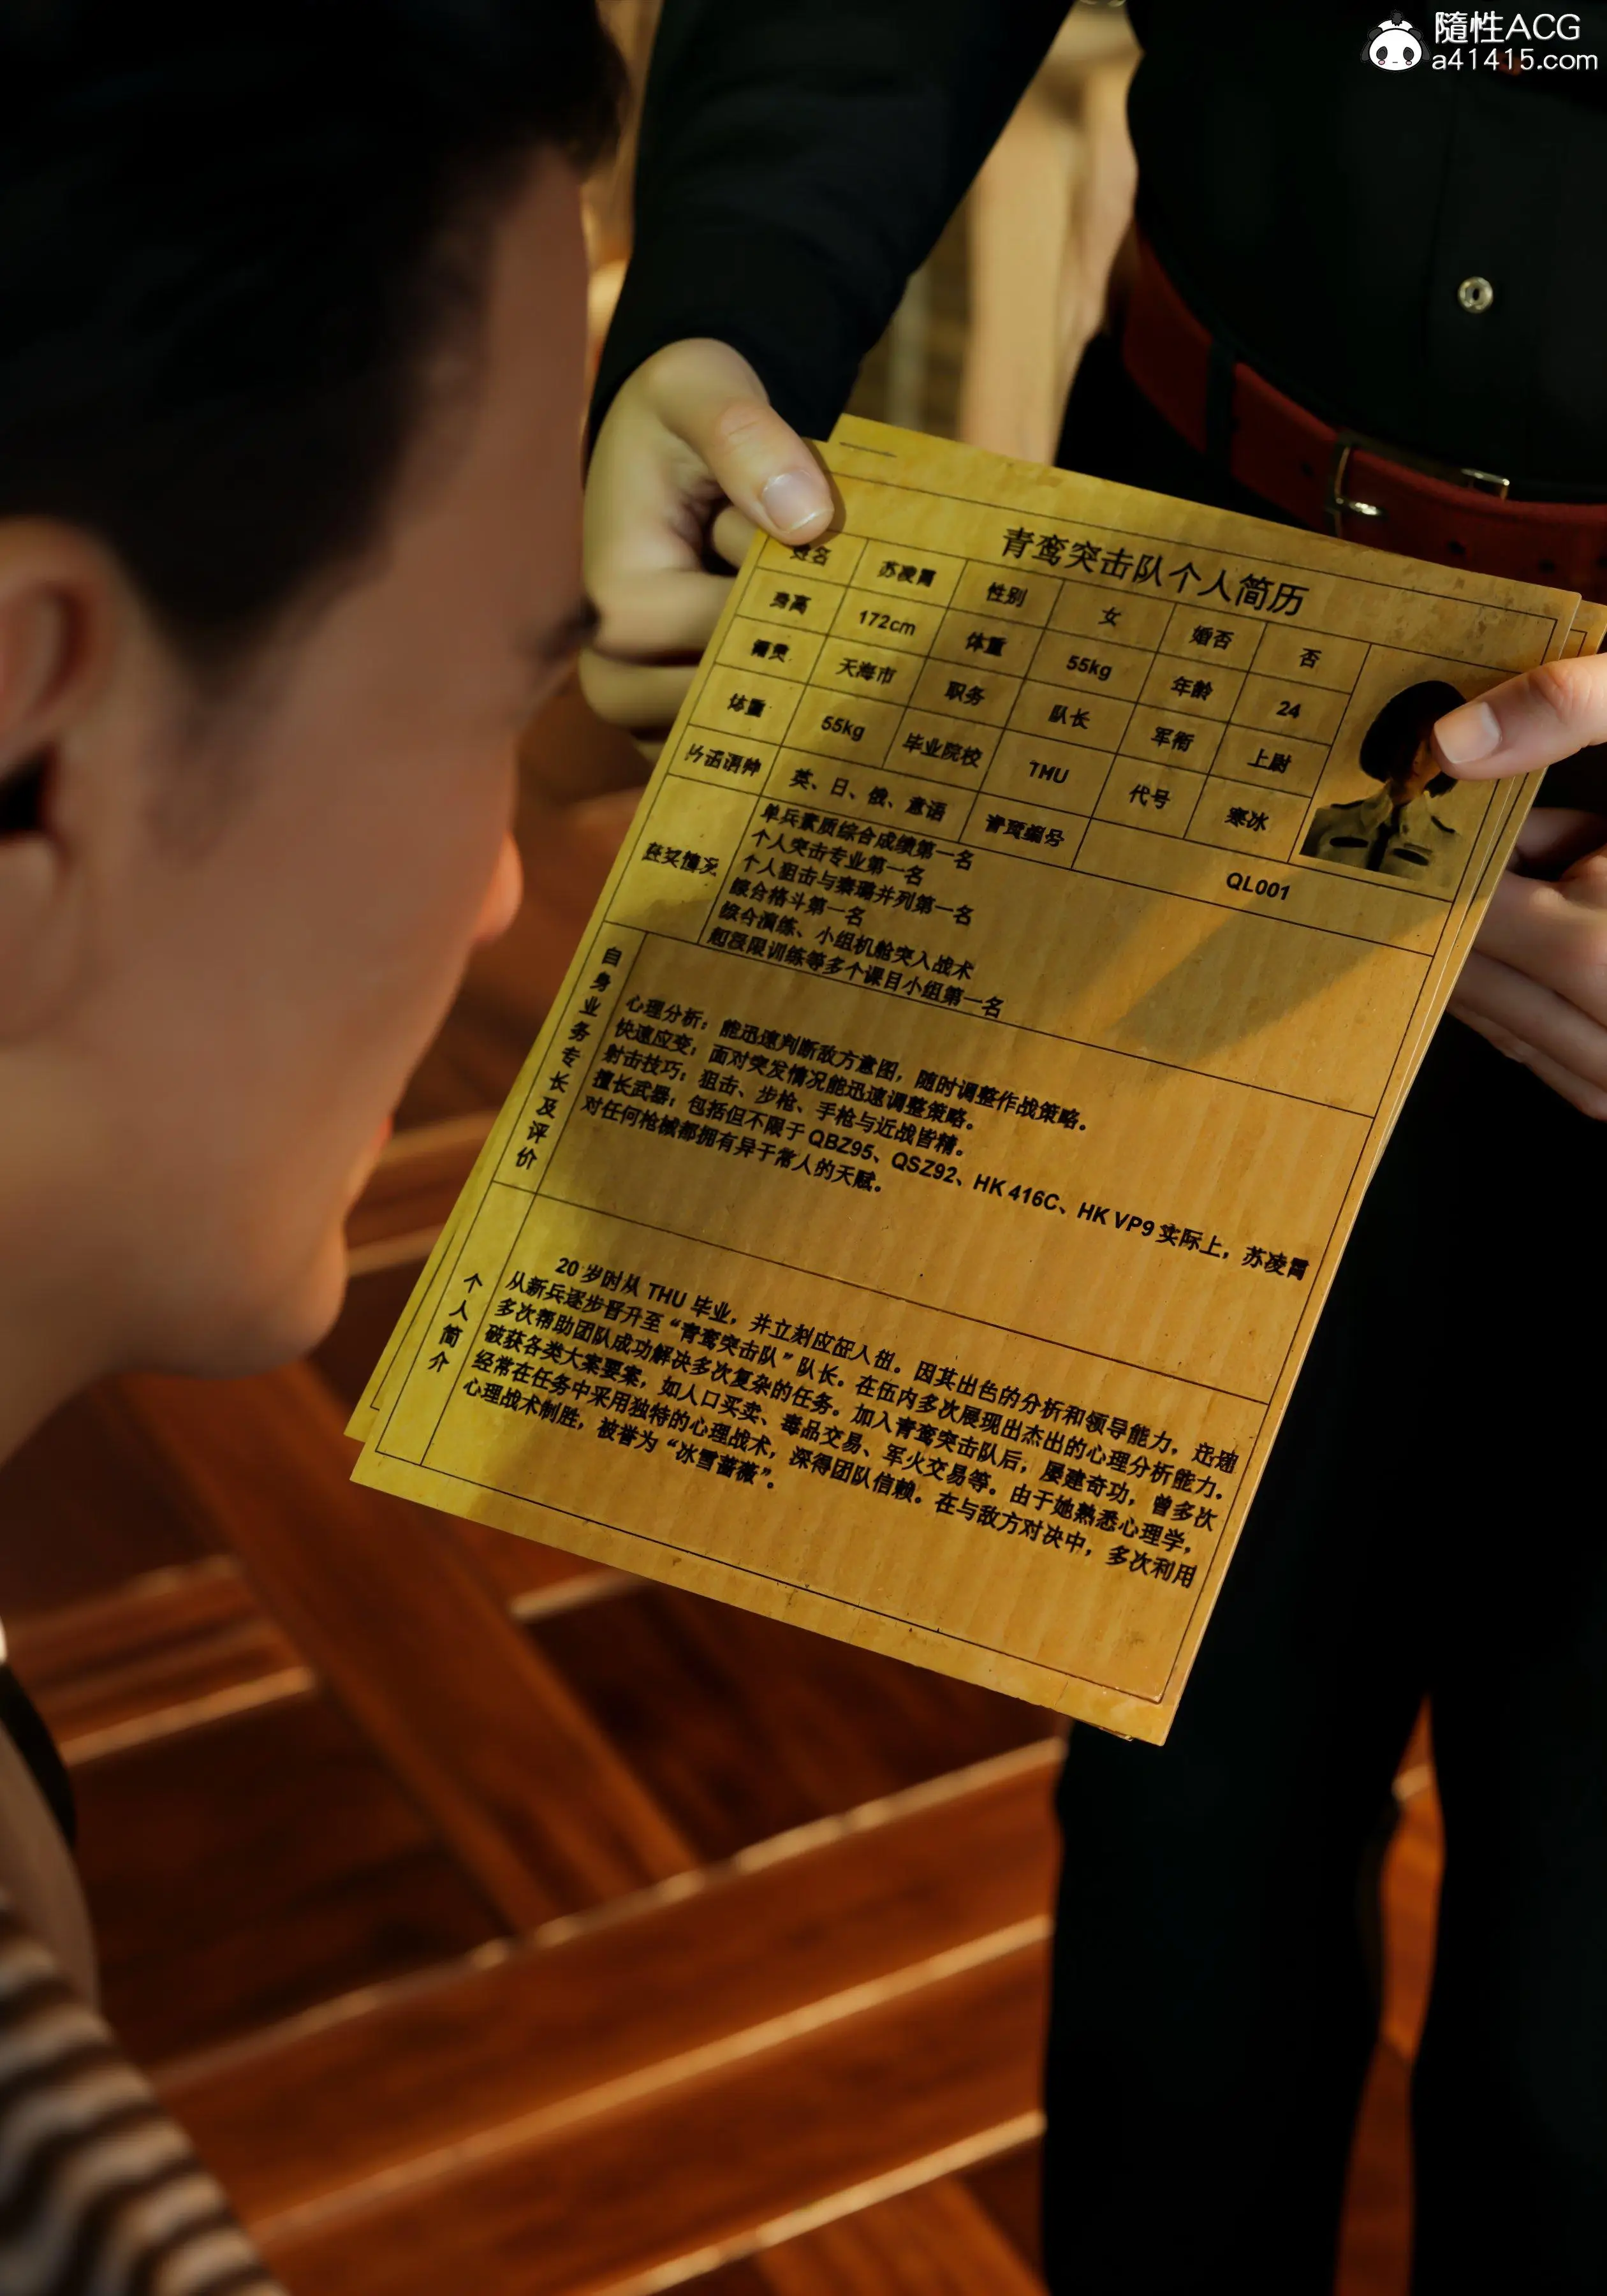 隨性ACG
a41415.com
青鸾突击队个人简历
姓名 苏凌霄 性别 女 婚否 否
身高 172cm 体重 55kg 年龄 24
籍贯 天海市 职务 队长 军衔 上尉
体重 55kg 毕业院校 THU 代号 寒冰
英、日、俄、意语 青鸾编号 QL001
获奖情况
单兵素质综合成绩第一名
个人突击专业第一名
个人狙击与秦璐并列第一名
综合格斗第一名
综合演练、小组机舱突入战术
超极限训练等多个课目小组第一名
自身业务专长及评价
心理分析：能迅速判断敌方意图，随时调整作战策略。
快速应变：面对突发情况能迅速调整策略。
射击技巧：狙击、步枪、手枪与近战皆精。
擅长武器：包括但不限于 QBZ95、QSZ92、HK 416C、HK VP9 实际上，苏凌霄
对任何枪械都拥有异于常人的天赋。
个人简介
20 岁时从 THU 毕业，并立刻应征入伍。因其出色的分析和领导能力，迅速
从新兵逐步晋升至“青鸾突击队”队长。在伍内多次展现出杰出的心理分析能力。
多次帮助团队成功解决多次复杂的任务。加入青鸾突击队后，屡建奇功，曾多次
破获各类大案要案，如人口买卖、毒品交易、军火交易等。由于她熟悉心理学，
经常在任务中采用独特的心理战术，深得团队信赖。在与敌方对决中，多次利用
心理战术制胜，被誉为“冰雪蔷薇”。